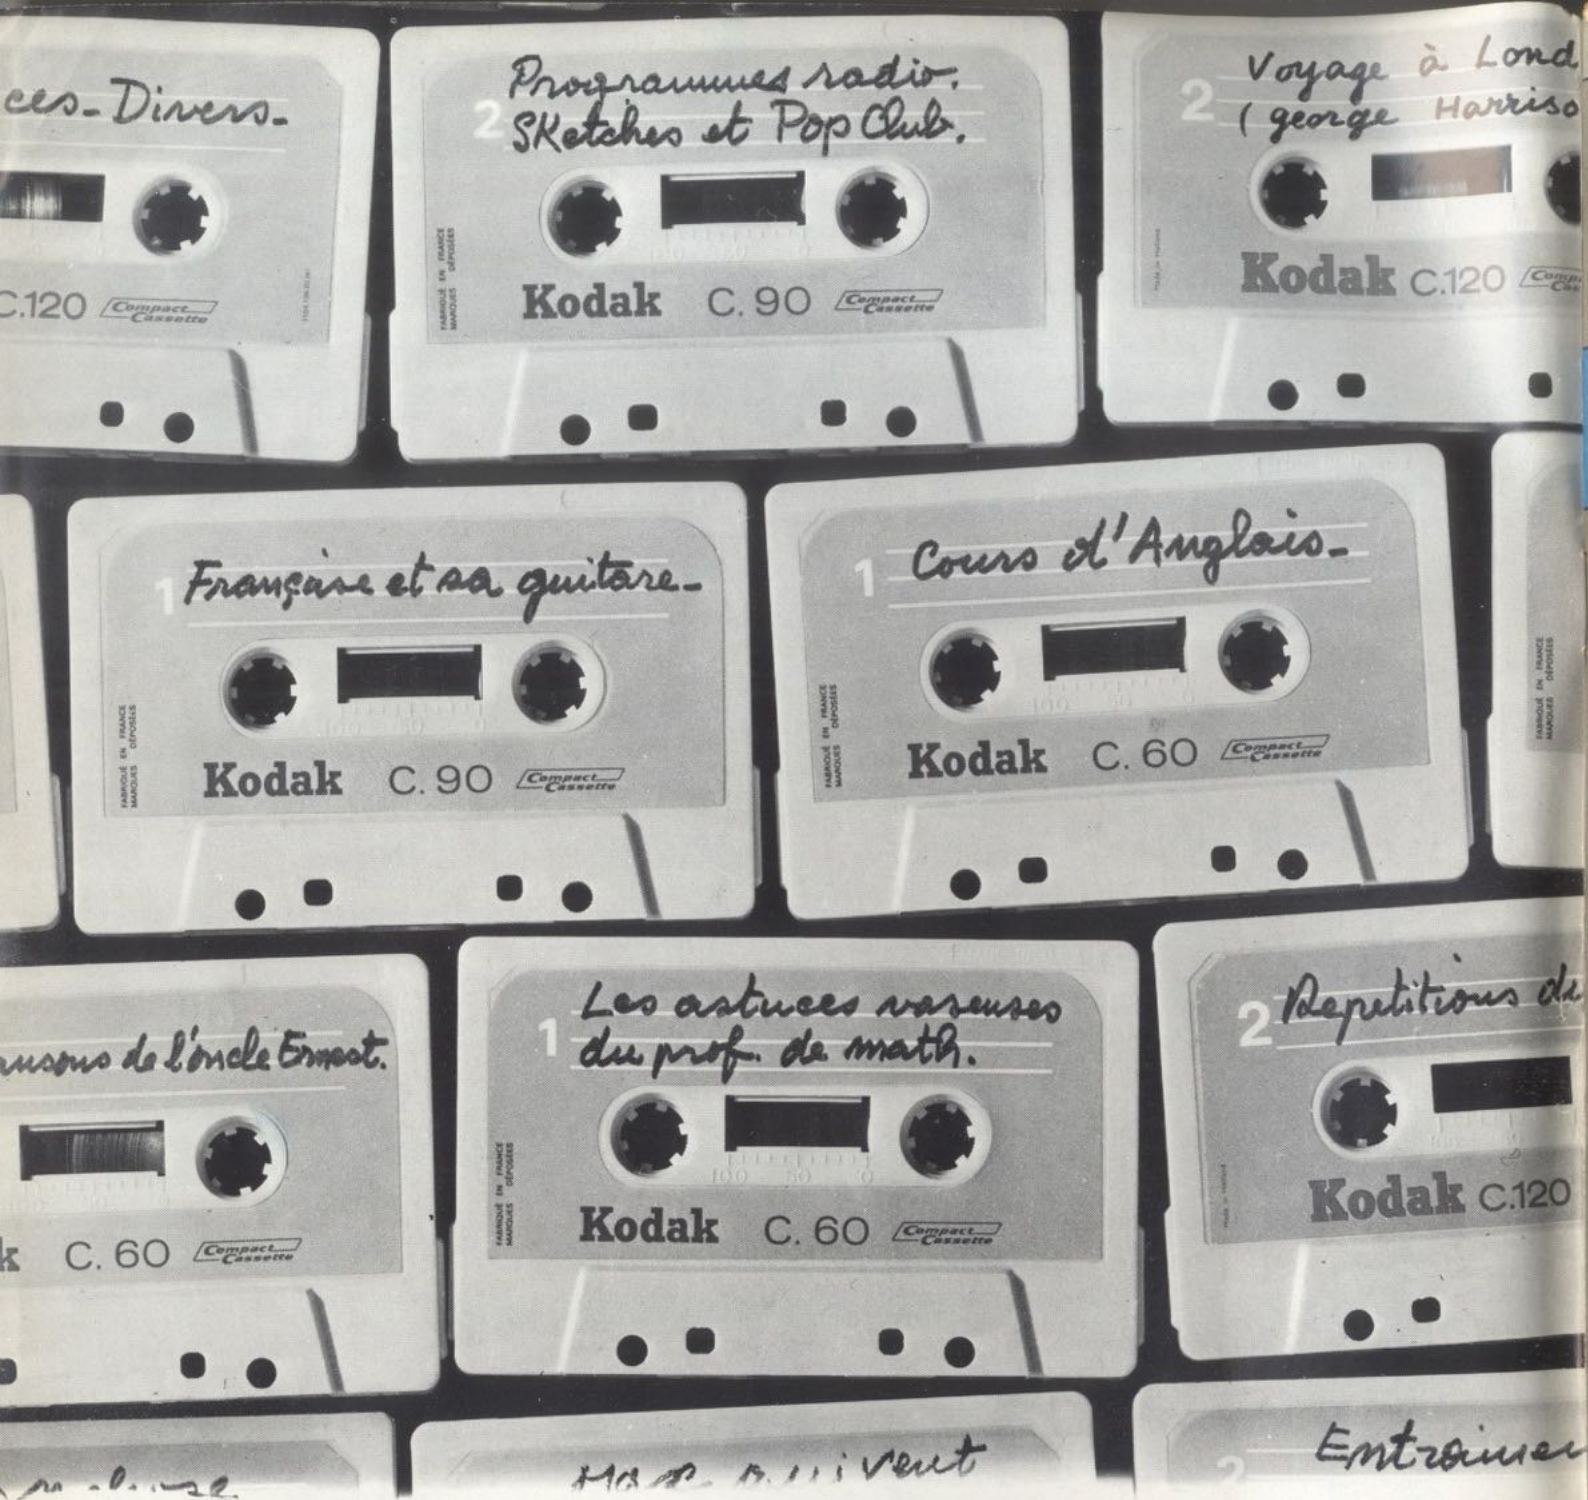 ces - Divers -
C.120 Compact Cassette
2 Programmes radio.
SKetches et Pop Club.
FABRIQUÉ EN FRANCE
MARQUES DÉPOSÉES
Kodak C. 90 Compact Cassette
2 Voyage à Lond
(george Harriso
Kodak C.120
1 Françoise et sa guitare -
100 50 0
FABRIQUÉ EN FRANCE
MARQUES DÉPOSÉES
Kodak C. 90 Compact Cassette
1 Cours d'Anglais -
100 50 0
FABRIQUÉ EN FRANCE
MARQUES DÉPOSÉES
Kodak C. 60 Compact Cassette
FABRIQUÉ EN FRANCE
MARQUES DÉPOSÉES
ansons de l'oncle Ernest.
k C. 60 Compact Cassette
1 Les astuces vaseuses
du prof. de math.
100 50 0
FABRIQUÉ EN FRANCE
MARQUES DÉPOSÉES
Kodak C. 60 Compact Cassette
2 Repetitions de
Kodak C.120
2 Entrainem